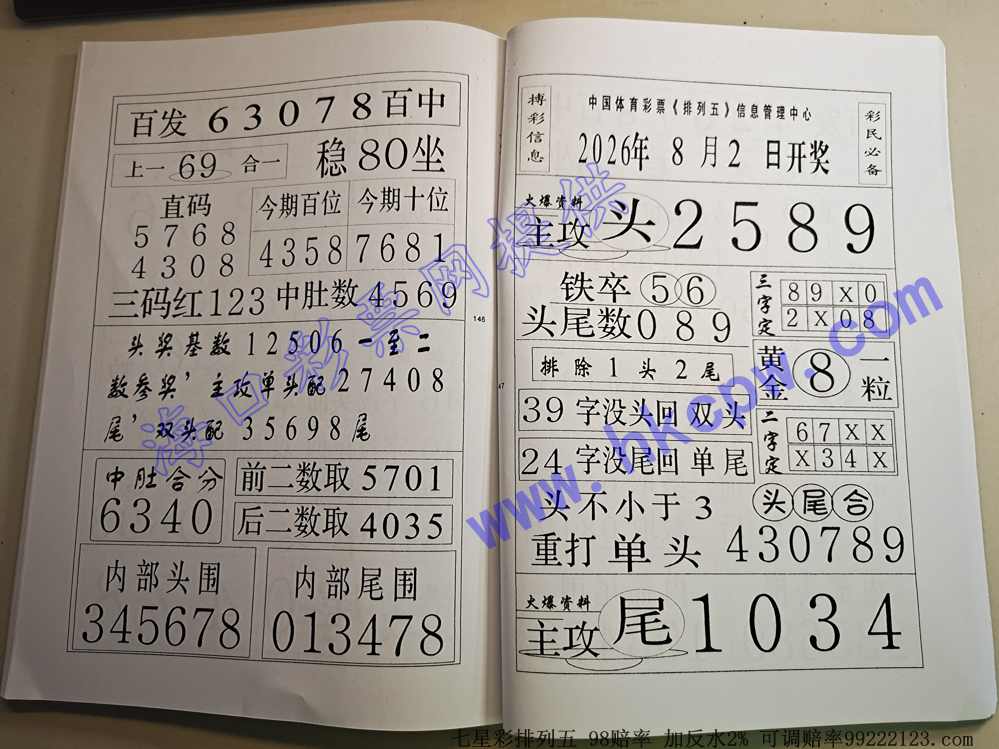 百发 63078 百中
上一 69 合一
稳 80 坐
直码
5768
4308
今期百位
4358
今期十位
7681
三码红 123 中肚数 4569
头奖基数 12506 一至二
数参奖’主攻单头配 27408
尾’双头配 35698 尾
中肚合分
6340
前二数取 5701
后二数取 4035
内部头围
345678
内部尾围
013478
146
47
搏彩信息
中国体育彩票《排列五》信息管理中心
2026年 8 月 2 日开奖
彩民必备
火爆资料
主攻 头 2589
铁卒 56
头尾数 089
排除 1 头 2 尾
39 字没头回 双头
24 字没尾回 单尾
三字定
89X0
2X08
黄金 8 一粒
二字定
67XX
X34X
头不小于 3
头尾合
重打单头 430789
火爆资料
主攻 尾 1034
海口彩票网提供
www.hkcpw.com
七星彩排列五 98赔率 加反水2% 可调赔率99222123.com